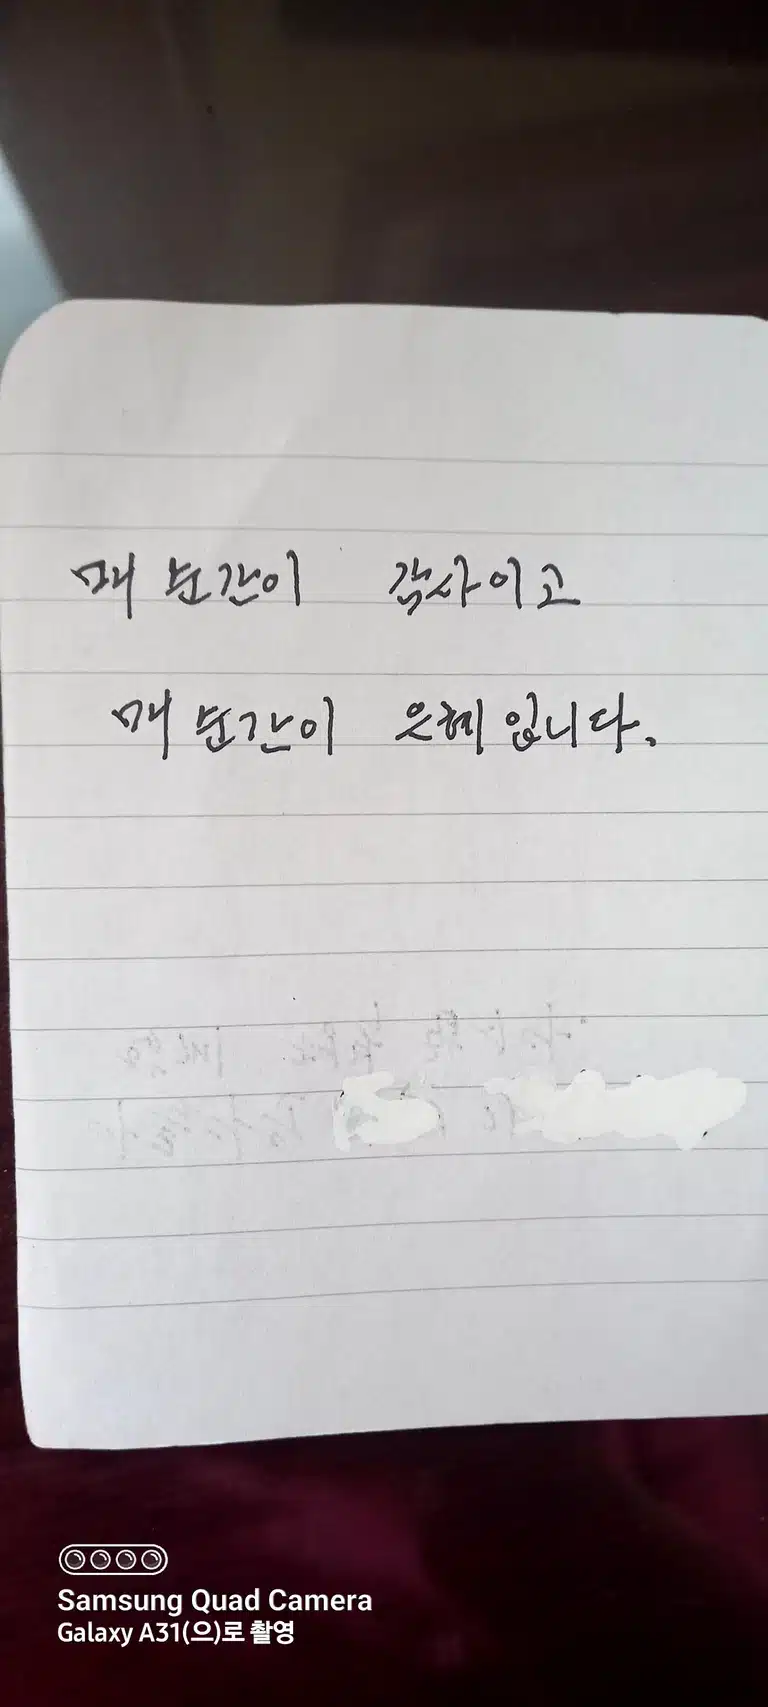 매 순간이 감사이고
매 순간이 은혜입니다.
Samsung Quad Camera
Galaxy A31(으)로 촬영